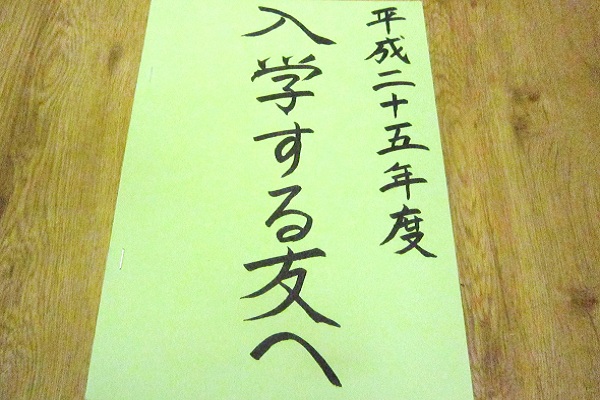 平成二十五年度
入学する友へ